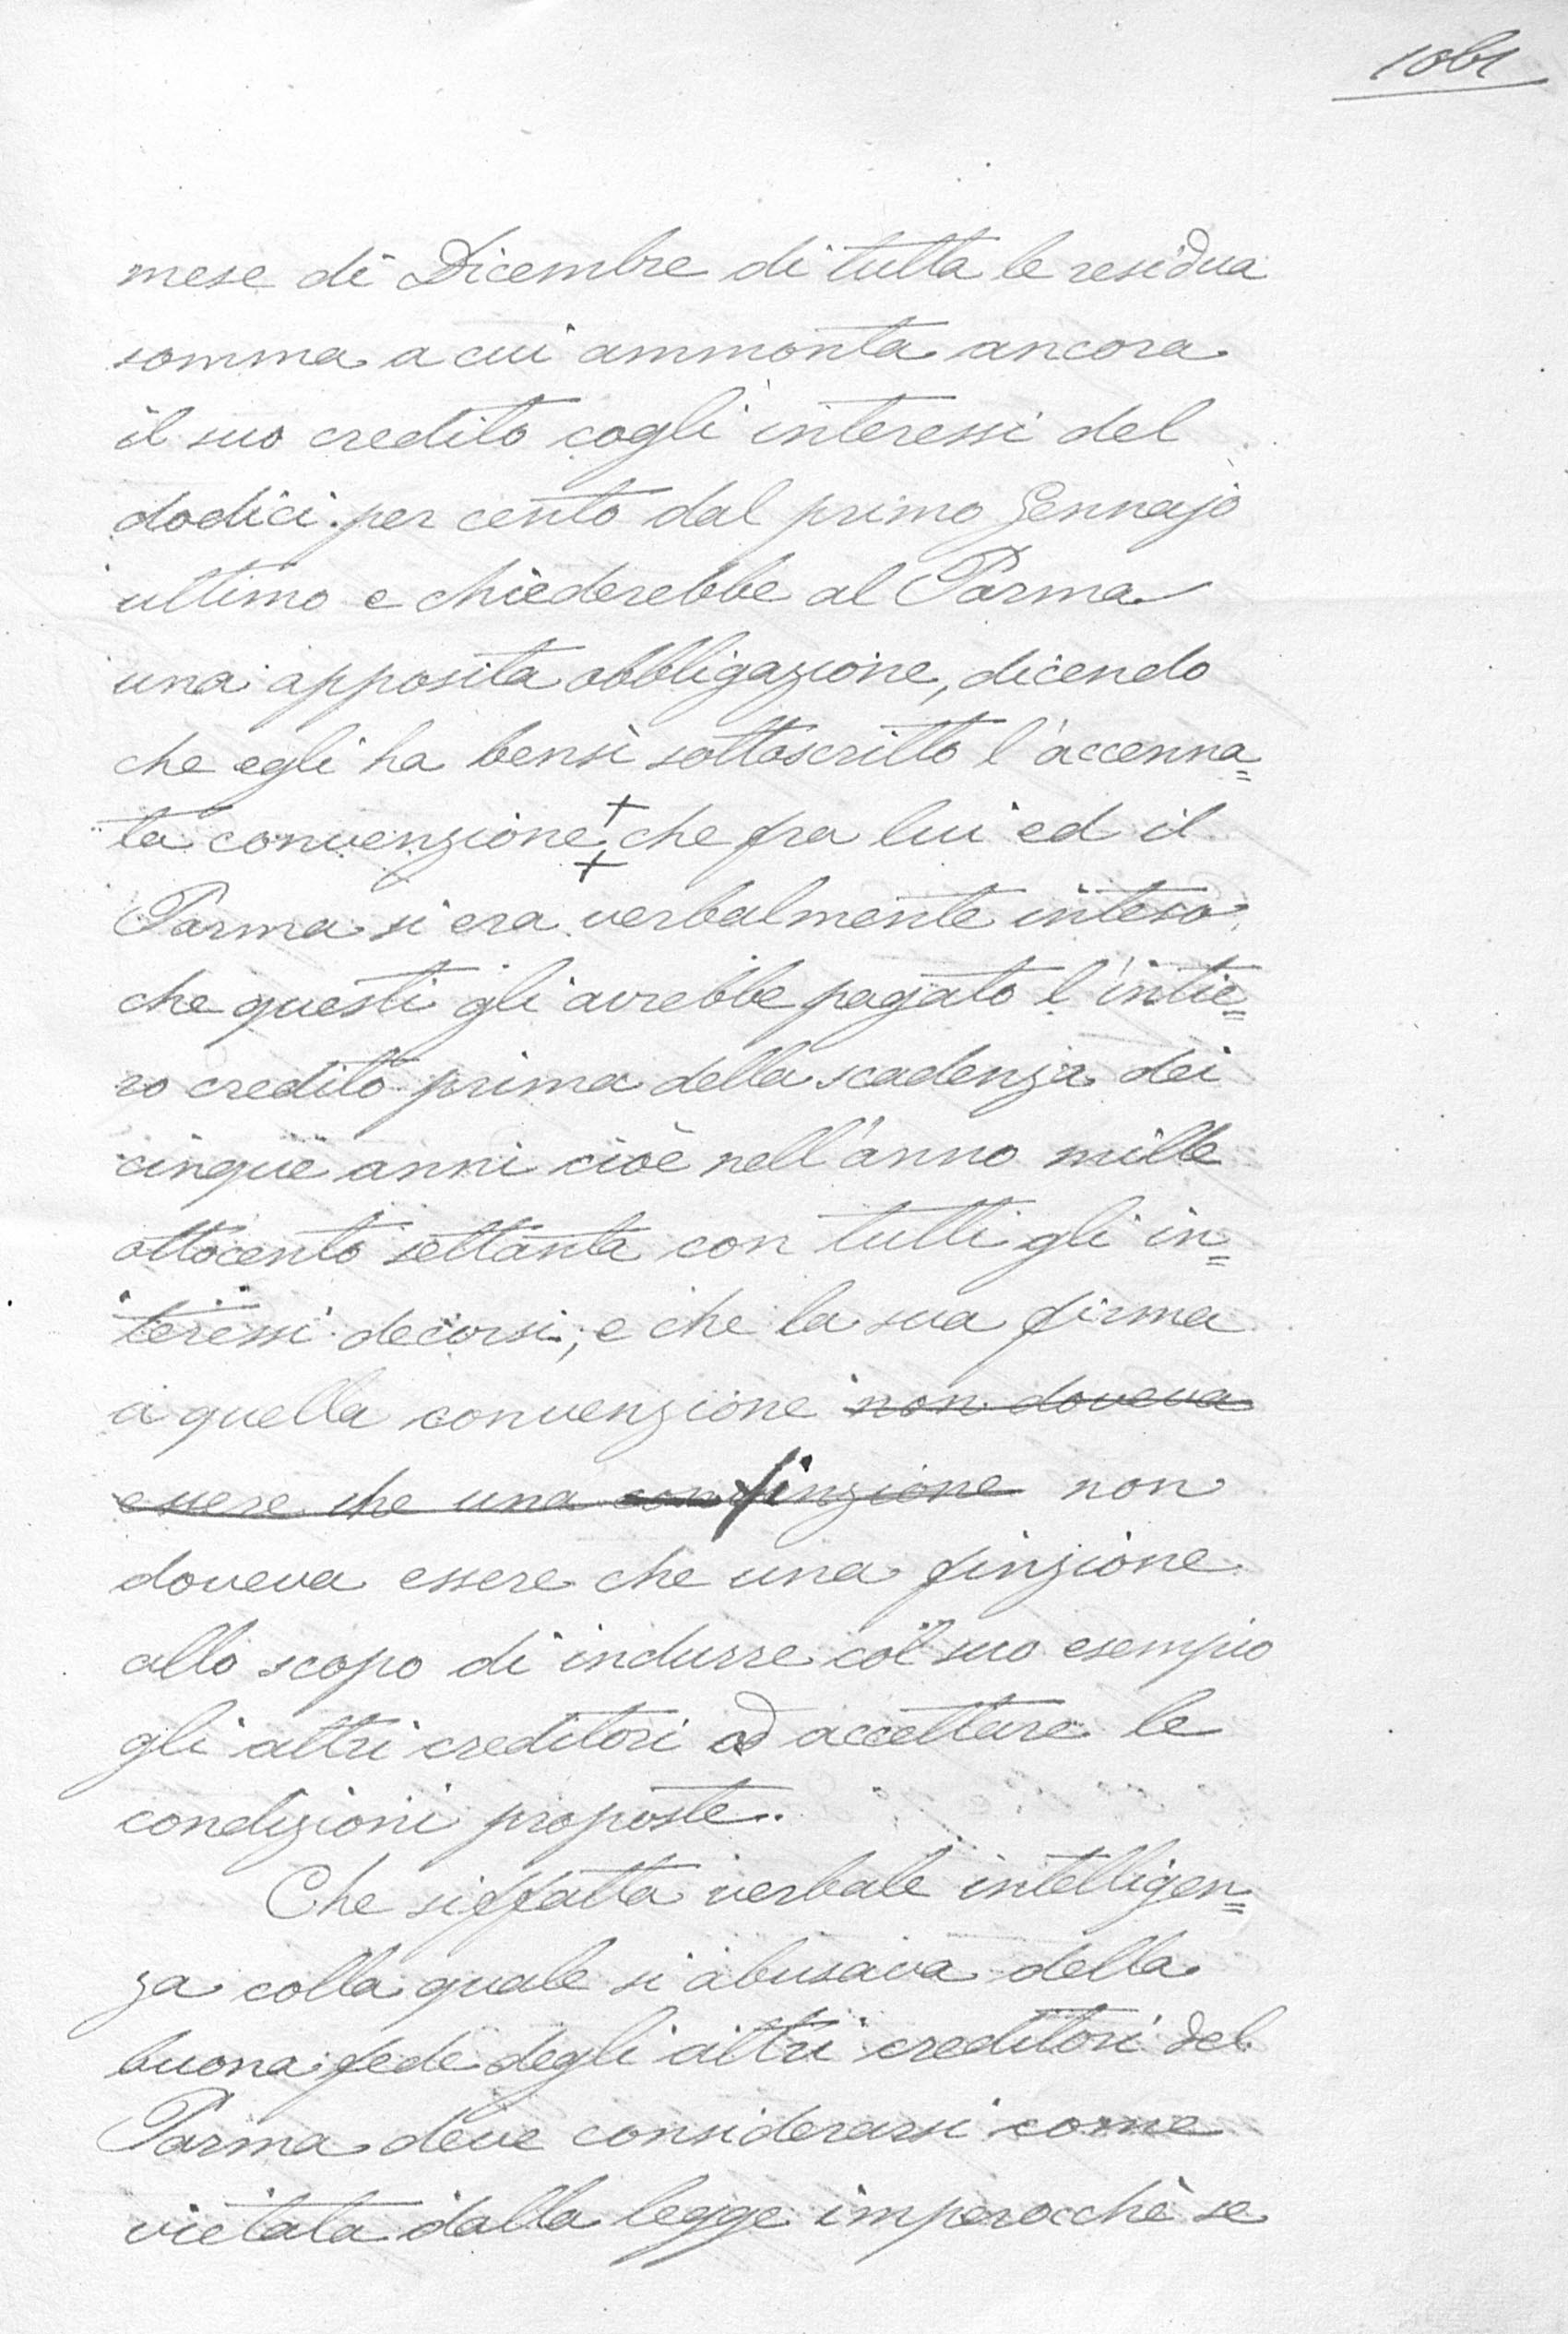 1061
mese di Dicembre di tutta le residua
somma a cui ammonta ancora
il suo credito cogli interessi del
dodici per cento dal primo Gennajo
ultimo e chiederebbe al Parma
una apposita obbligazione, dicendo
che egli ha bensì sottoscritto l'accenna=
ta convenzione, che fra lui ed il
Parma si era verbalmente inteso,
che questi gli avrebbe pagato l'intie=
ro credito prima della scadenza dei
cinque anni cioè nell'anno mille
ottocento settanta con tutti gli in=
teressi decorsi; e che la sua firma
a quella convenzione non doveva
essere che una finzione non
doveva essere che una finzione
allo scopo di indurre col suo esempio
gli altri creditori ad accettare le
condizioni proposte.
Che siffatta verbale intelligen=
za colla quale si abusava della
buona fede degli altri creditori del
Parma deve considerarsi come
vietata dalla legge imperocchè se